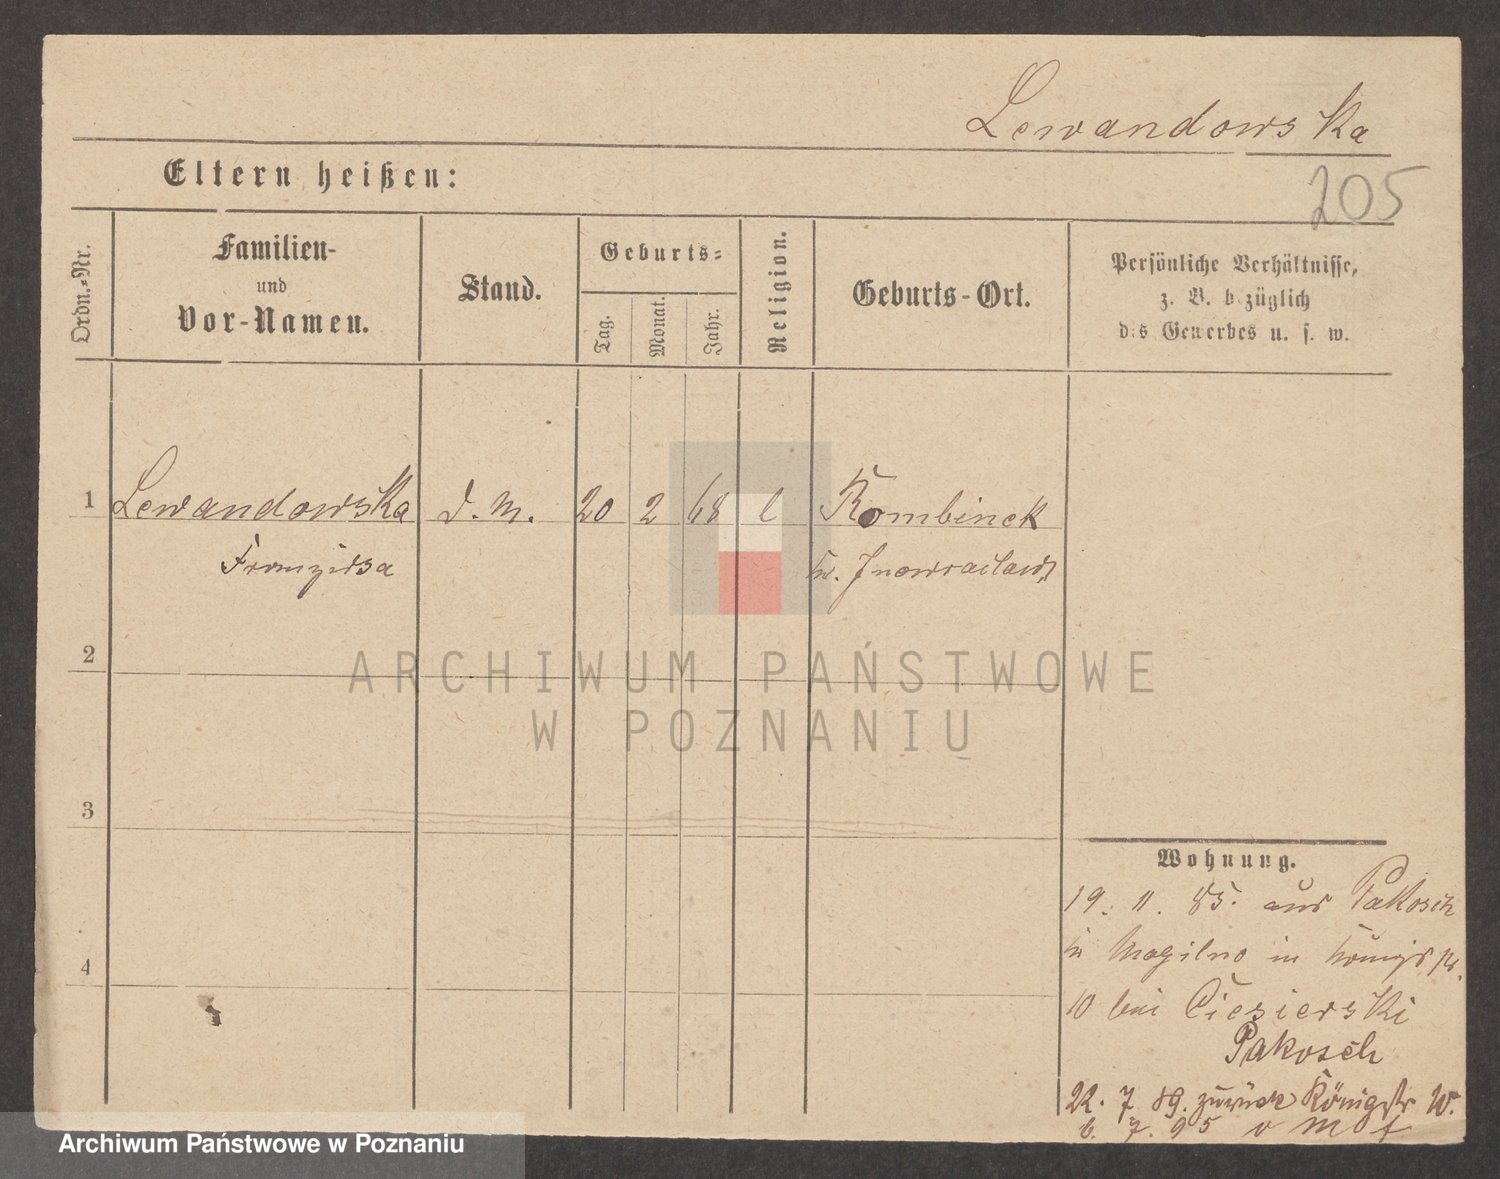 Lewandowska
205
Eltern heißen:
Ordn.-Nr.
Familien-
und
Vor-Namen.
Stand.
Geburts-
Tag.
Monat.
Jahr.
Religion.
Geburts-Ort.
Persönliche Verhältnisse,
z. B. bezüglich
des Gewerbes u. s. w.
1 Lewandowska d. M. 20 2 68 Rombinek
Kr. Inowraclaw
2
ARCHIWUM PAŃSTWOWE
W POZNANIU
3
Wohnung.
19. 11. 85. aus Pakosch
Kr Mogilno in Königstr.
4
10 bei Ciesierski
Pakosch
22. 7. 89. zurück Königstr
6. 7. 95
Archiwum Państwowe w Poznaniu